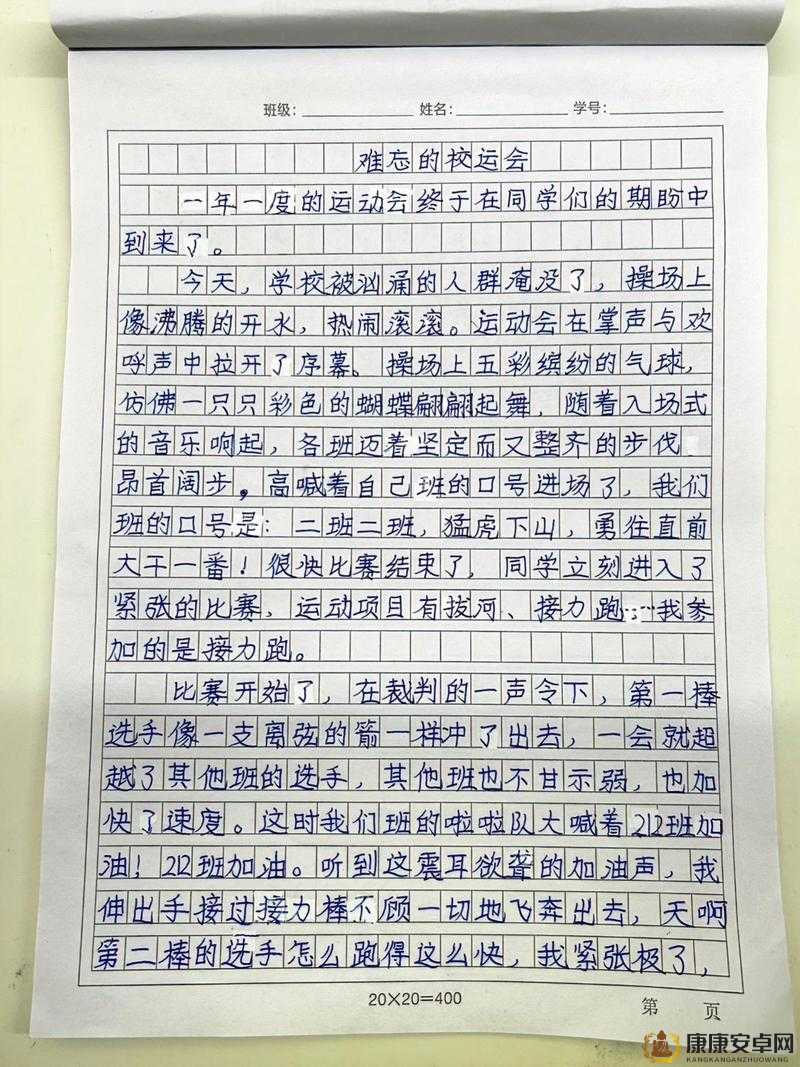 班级： 姓名： 学号：
难忘的校运会
一年一度的运动会终于在同学们的期盼中
到来了。
今天，学校被汹涌的人群淹没了，操场上
像沸腾的开水，热闹滚滚。运动会在掌声与欢
呼声中拉开了序幕。操场上五彩缤纷的气球，
仿佛一只只彩色的蝴蝶翩翩起舞，随着入场式
的音乐响起，各班迈着坚定而又整齐的步伐
昂首阔步，高喊着自己班的口号进场了，我们
班的口号是：二班二班，猛虎下山，勇往直前
大干一番！很快比赛结束了，同学立刻进入了
紧张的比赛，运动项目有拔河、接力跑……我参
加的是接力跑。
比赛开始了，在裁判的一声令下，第一棒
选手像一支离弦的箭一样冲了出去，一会就超
越了其他班的选手，其他班也不甘示弱，也加
快了速度。这时我们班的啦啦队大喊着212班加
油！212班加油。听到这震耳欲聋的加油声，我
伸出手接过接力棒不顾一切地飞奔出去，天啊
第二棒的选手怎么跑得这么快，我紧张极了，
20×20=400
第 页
康康安卓网
KANGKANGANZHUOWANG